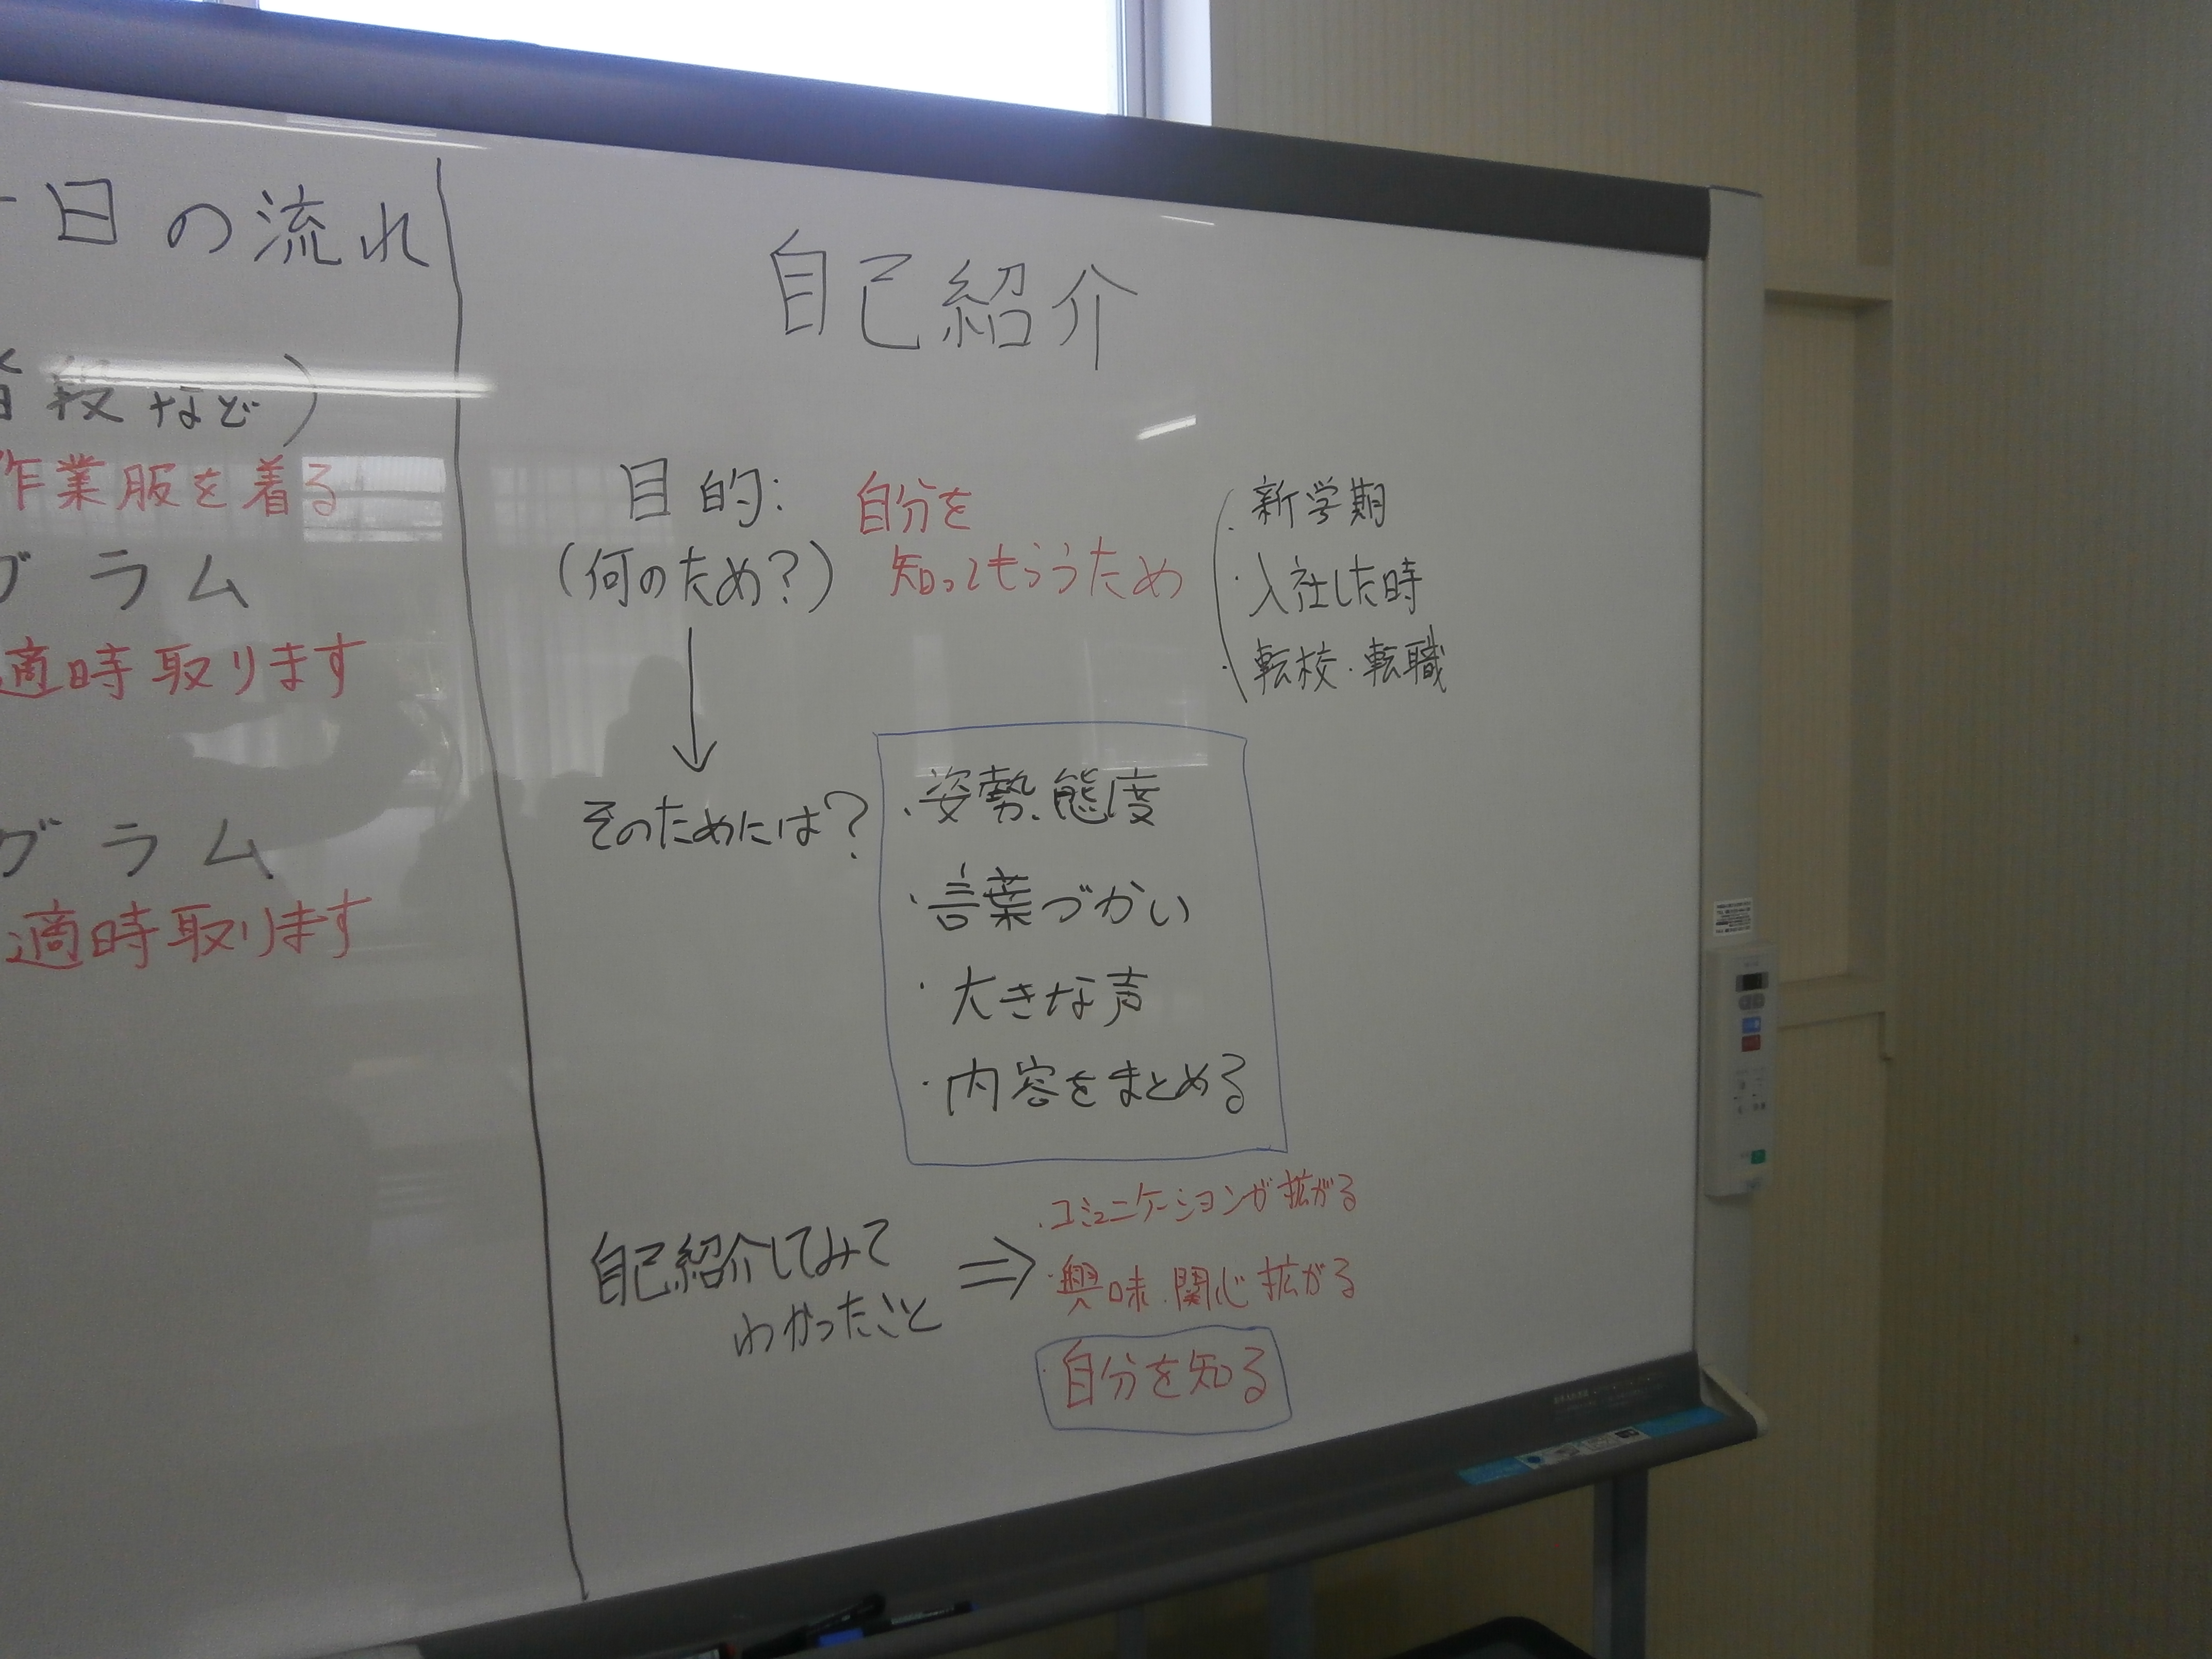 日の流れ
段など)
作業服を着る
グラム
適時取ります
グラム
適時取ります
自己紹介
目的: 自分を
(何のため?) 知ってもらうため
・新学期
・入社した時
・転校・転職
そのためには?
・姿勢、態度
・言葉づかい
・大きな声
・内容をまとめる
自己紹介してみて
わかったこと
⇒
・コミュニケーションが拡がる
・興味・関心拡がる
・自分を知る